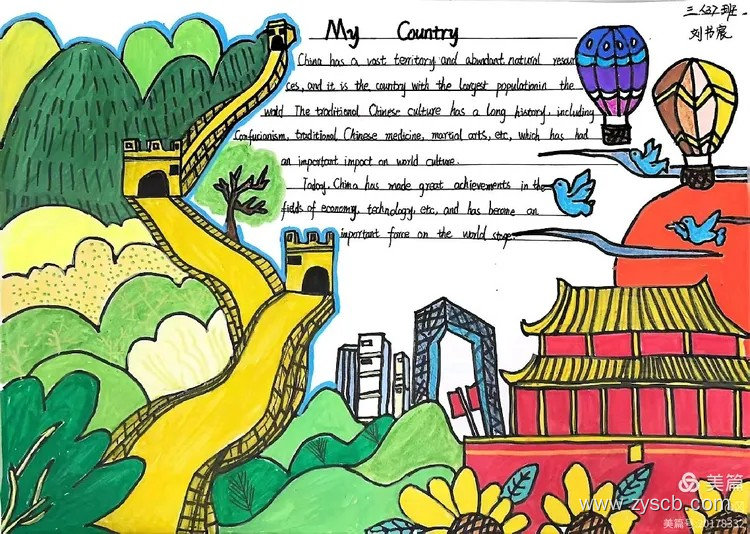 My Country
三(3)班.
刘书宸
China has a vast territory and abundant natural resour
ces, and it is the country with the largest population in the
world. The traditional Chinese culture has a long history, including
Confucianism, traditional Chinese medicine, martial arts, etc, which has had
an important impact on world culture.
Today, China has made great achievements in the
fields of economy, technology, etc, and has become an
important force on the world stage.
美篇
www.zyscb.com
美篇号:20178332